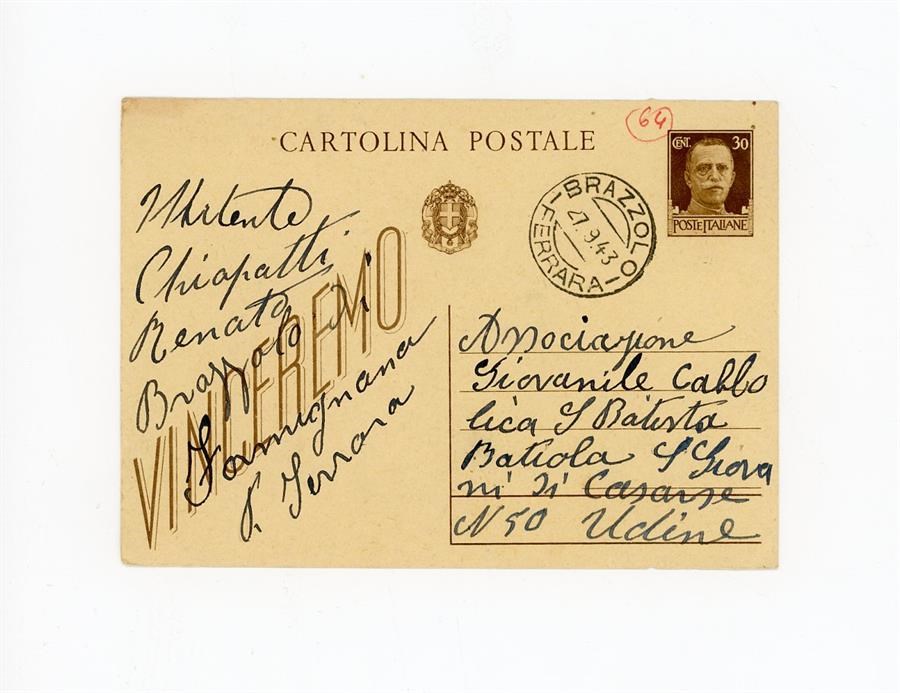 CARTOLINA POSTALE
64
CENT. 30
POSTE ITALIANE
BRAZZOLO
27.9.43
FERRARA
Mittente
Chiapatti
Renato
Brazzolo di
Formignana
P. Ferrara
VINCEREMO
Associazione
Giovanile Catto
lica S Batista
Batiola S Giova
ni di Casarse
N 50 Udine